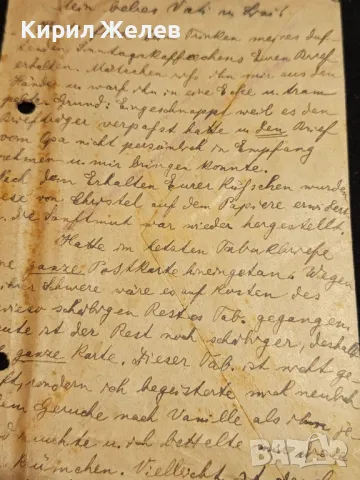 Кирил Желев
Mein liebes Vati u. Gasi!
Trinken meines duf-
tenden Sonntagskaffeechens Euren Brief
erhalten. Mütterchen riss ihn mir aus den
Händen u. warf ihn in eine Ecke u. tram
Grund: Eingeschnappt weil es den
Briefträger verpasst hatte u. den Brief
vom Opa nicht persönlich in Empfang
nehmen u. mir bringen konnte.
Nach dem Erhalten Eurer Küsschen wurden
diese von Christel auf dem Papiere erwidert
u. die Sanftmut war wieder hergestellt.
Hatte im letzten Tabakbriefe
eine ganze Postkarte hineingetan. Wegen
der Schwere wäre es auf Kosten des
schäbigen Restes Tab. gegangen,
heute ist der Rest noch schäbiger, deshalb
ganze Karte. Dieser Tab. ist nicht ge
sondern ich begeisterte mich neulich
dem Geruche nach Vanille als ihn je
rauchte u. ich bettelte mir
Bümchen. Vielleicht ist
bazar